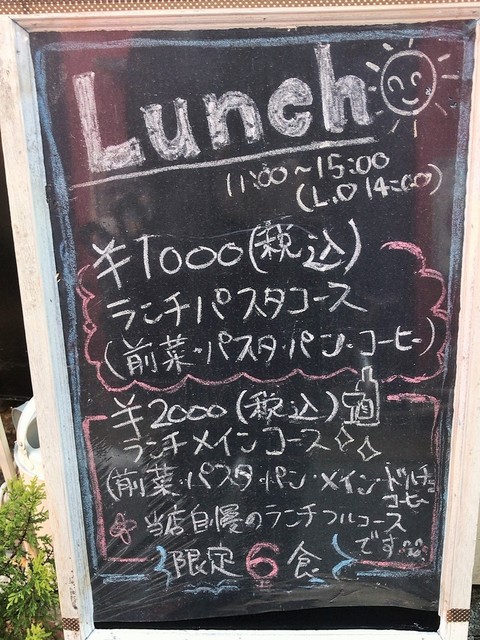 Lunch
11:00~15:00
(L.O 14:00)
¥1000(税込)
ランチパスタコース
(前菜・パスタ・パン・コーヒー)
¥2000(税込)
ランチメインコース
(前菜・パスタ・パン・メイン・ドルチェ
コーヒー
当店自慢のランチフルコース
です
限定6食